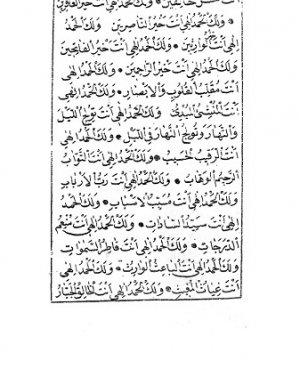 ولك الحمد إلهي أنت خير الناصرين ۞ ولك الحمد
إلهي أنت خير الوارثين ۞ ولك الحمد إلهي أنت خير الفاتحين
ولك الحمد إلهي أنت خير الراحمين ۞ ولك الحمد إلهي
أنت مقلب القلوب والأبصار ۞ ولك الحمد إلهي
أنت المنشئ المبدئ ۞ ولك الحمد إلهي أنت تولج الليل
والنهار وتولج النهار في الليل ۞ ولك الحمد إلهي
أنت الرقيب الحسيب ۞ ولك الحمد إلهي أنت التواب
الرحيم الوهاب ۞ ولك الحمد إلهي أنت رب الأرباب
ولك الحمد إلهي أنت مسبب الأسباب ۞ ولك الحمد
إلهي أنت سيد السادات ۞ ولك الحمد إلهي أنت منعم
الدرجات ۞ ولك الحمد إلهي أنت فاطر السموات
ولك الحمد إلهي أنت الباعث الوارث ۞ ولك الحمد إلهي
أنت غياث المغيث ۞ ولك الحمد إلهي أنت الخالق الجبار